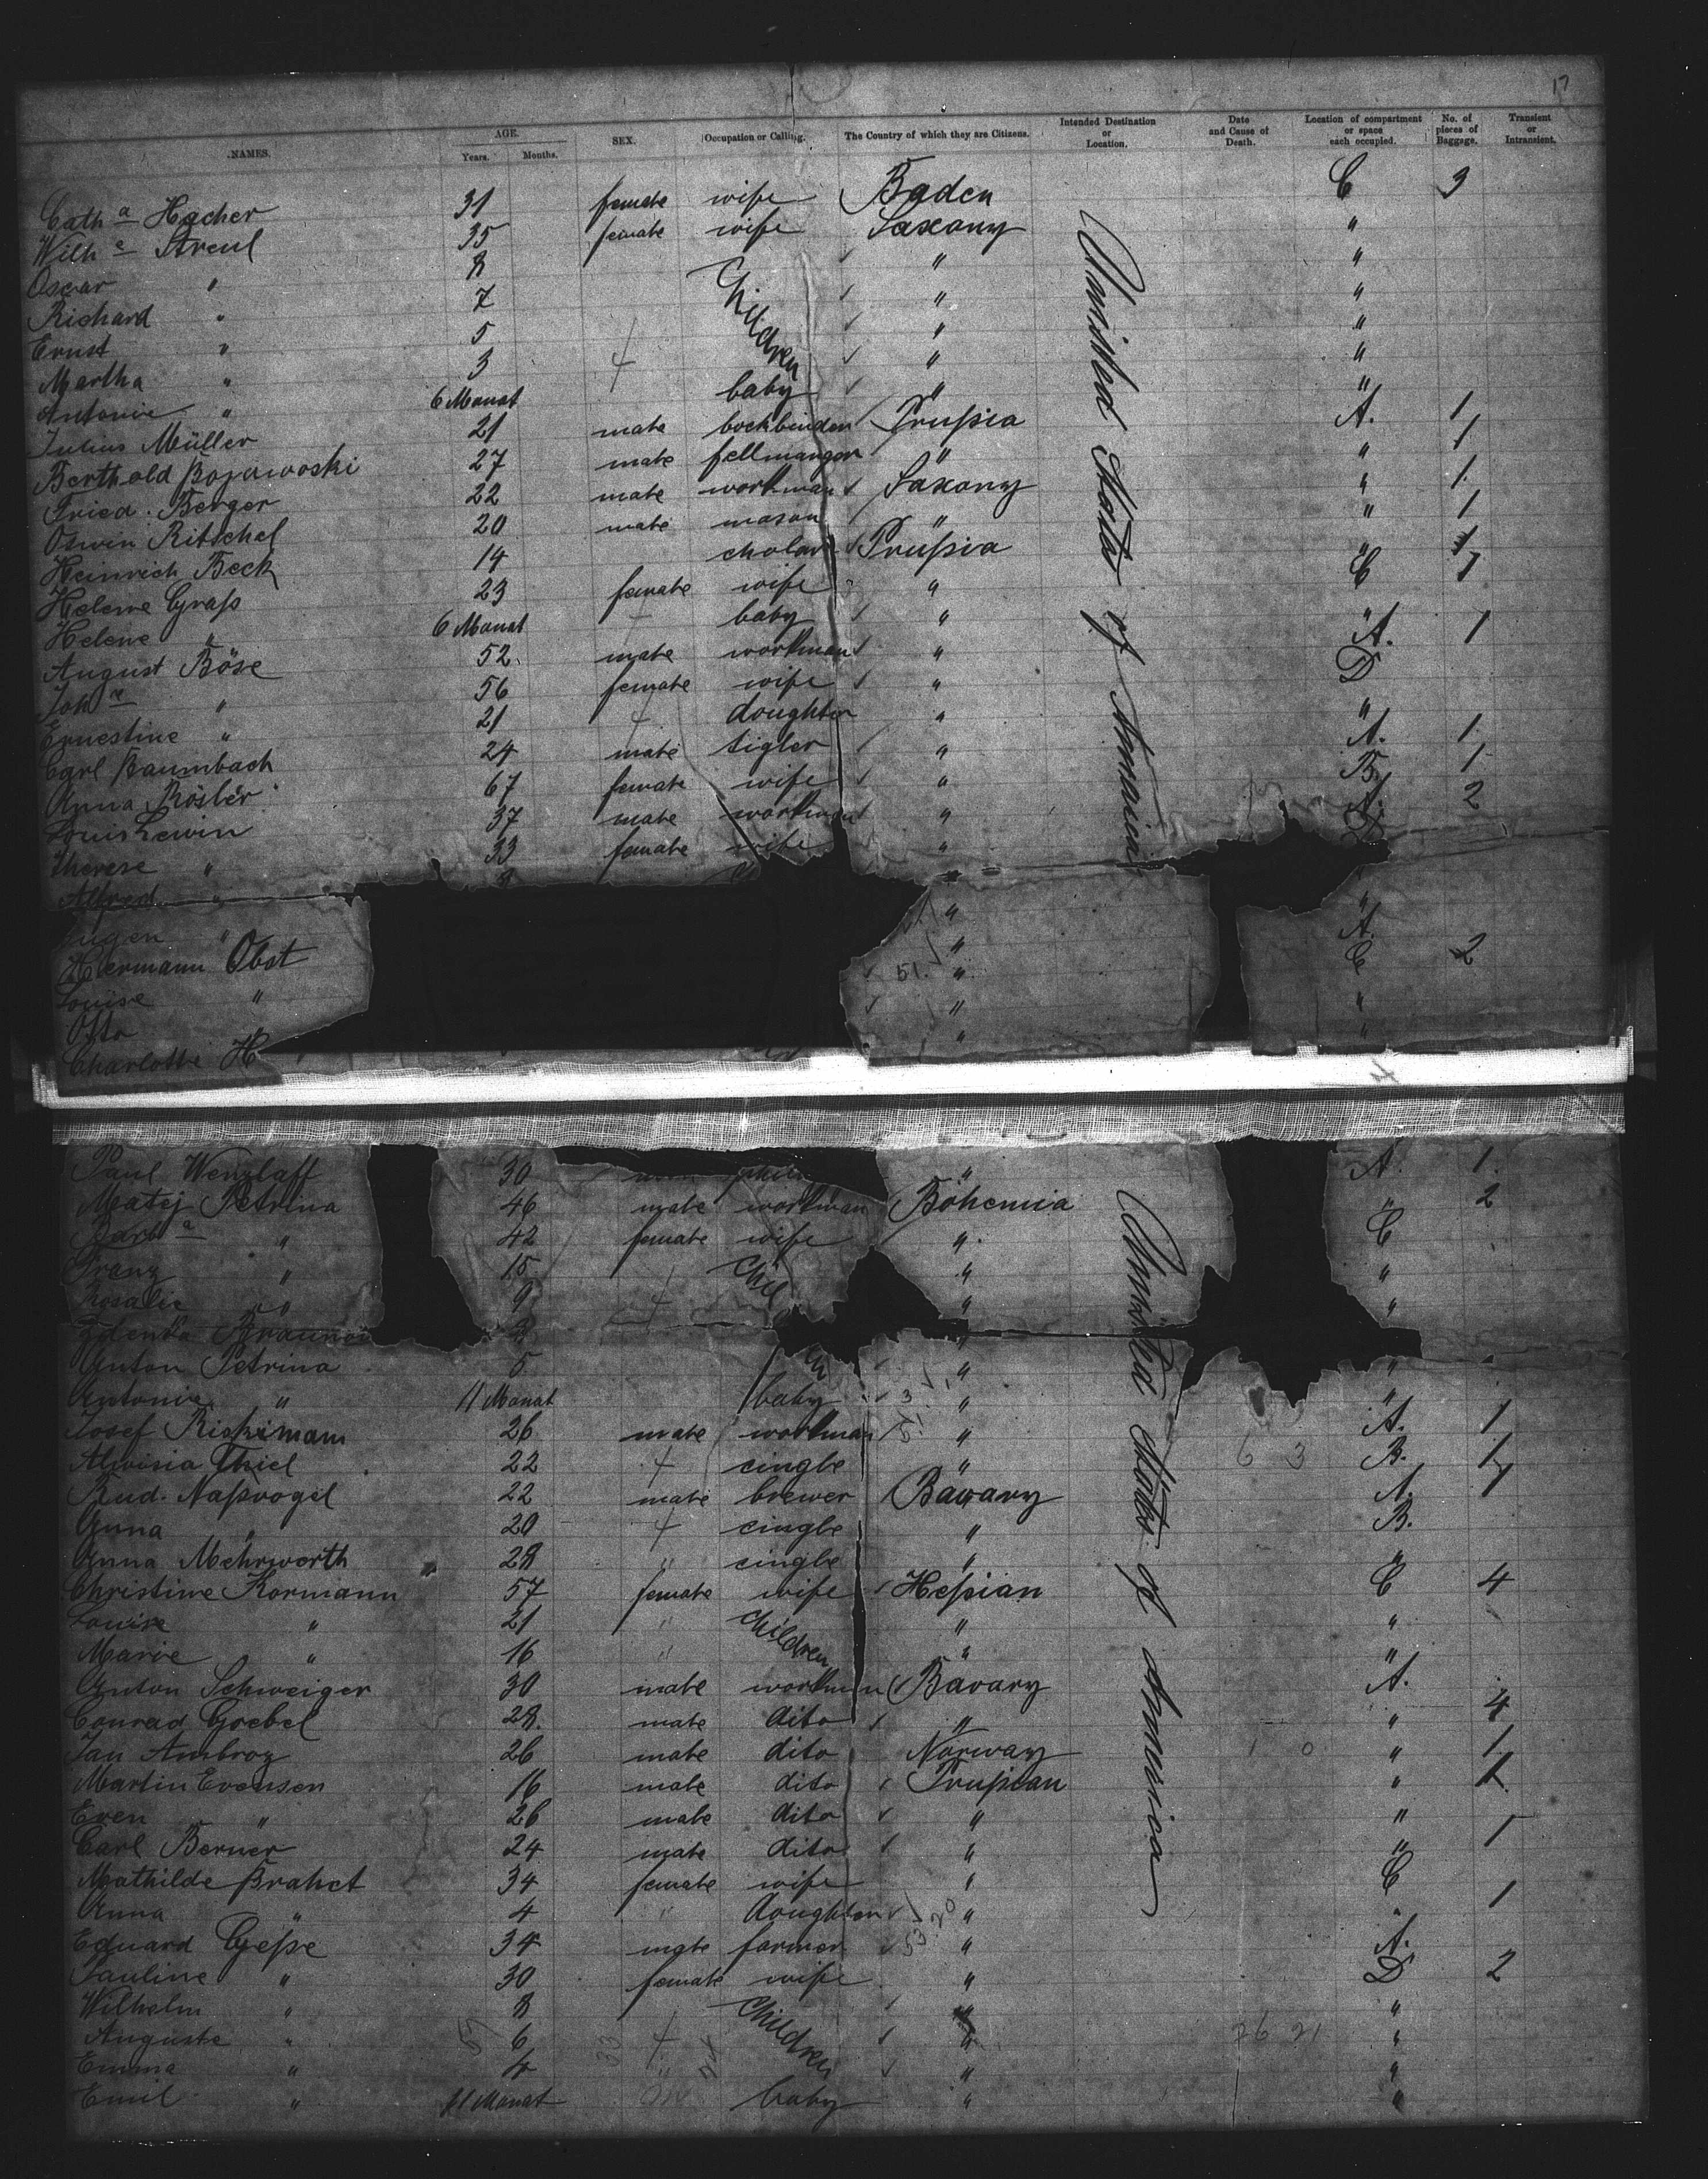 17
NAMES. AGE. Years. Months. SEX. Occupation or Calling. The Country of which they are Citizens. Intended Destination or Location. Date and Cause of Death. Location of compartment or space each occupied. No. of pieces of Baggage. Transient or Intransient.
Cath a Hacher 31 female wife Baden C 3
Wilh e Streul 35 female wife Saxony "
Oscar " 8 Children " "
Richard " 7 " "
Ernst " 5 " "
Martha " 3 " "
Antonie " 6 Monat baby " "
Julius Müller 21 male bockbinder Prußia A. 1
Berthold 27 male fellmanger " " 1
Fried. Berger 22 male workman Saxony " 1
Oswin Ritschel 20 male mason " " 1
Heinrich Beck 14 cholar Prußia " 1
Helene Graß 23 female wife " C 1
Helene " 6 Monat baby " "
August Böse 52 male workman " A. 1
Joh e " 56 female wife " D
Ernestine " 21 doughter " "
Carl Baumbach 24 male tigler " A. 1
Anna Rösler 67 female wife " B. 1
Louis Lewin 37 male workman " A. 2
Therese " 33 female wife "
Alfred "
Eugen " " "
Hermann Obst " A.
Louise " " C 2
Otto " "
Charlotte H " "
United States of America
Paul Wenzlaff 30 " A. 1
Matej Petrina 46 male workman Böhemia " 2
Barb a " 42 female wife " C
Franz " 15 Chil " "
Rosalie " 9 " "
Zdenka
Anton Petrina 5 " "
Antonie " 11 Monat baby " "
Josef 26 male workman " A. 1
Aloisia Thiel 22 cingle " B. 1
Rud. Naßvogel 22 male brewer Bavary A. 1
Anna " 20 cingle " B.
Anna Mehrworth 28 " cingle " "
Christine Kormann 57 female wife Heßian C 4
Louise " 21 " Children " "
Marie " 16 " " "
Anton Schweiger 30 male workman Bavary A.
Conrad Goebel 28. male dito " " 4
Jan Ambroz 26 male dito Norway " 1
Martin Evensen 16 male dito Prußian " 1
Even " 26 male dito " "
Carl Berner 24 male dito " " 1
Mathilde Brahet 34 female wife " C
Anna " 4 " doughter " " 1
Eduard Geße 34 male farmer " A.
Pauline " 30 female wife " D 2
Wilhelm " 8 Children " "
Auguste " 6 " "
Emma " 4 " "
Emil " 11 Monat baby " "
United States of America